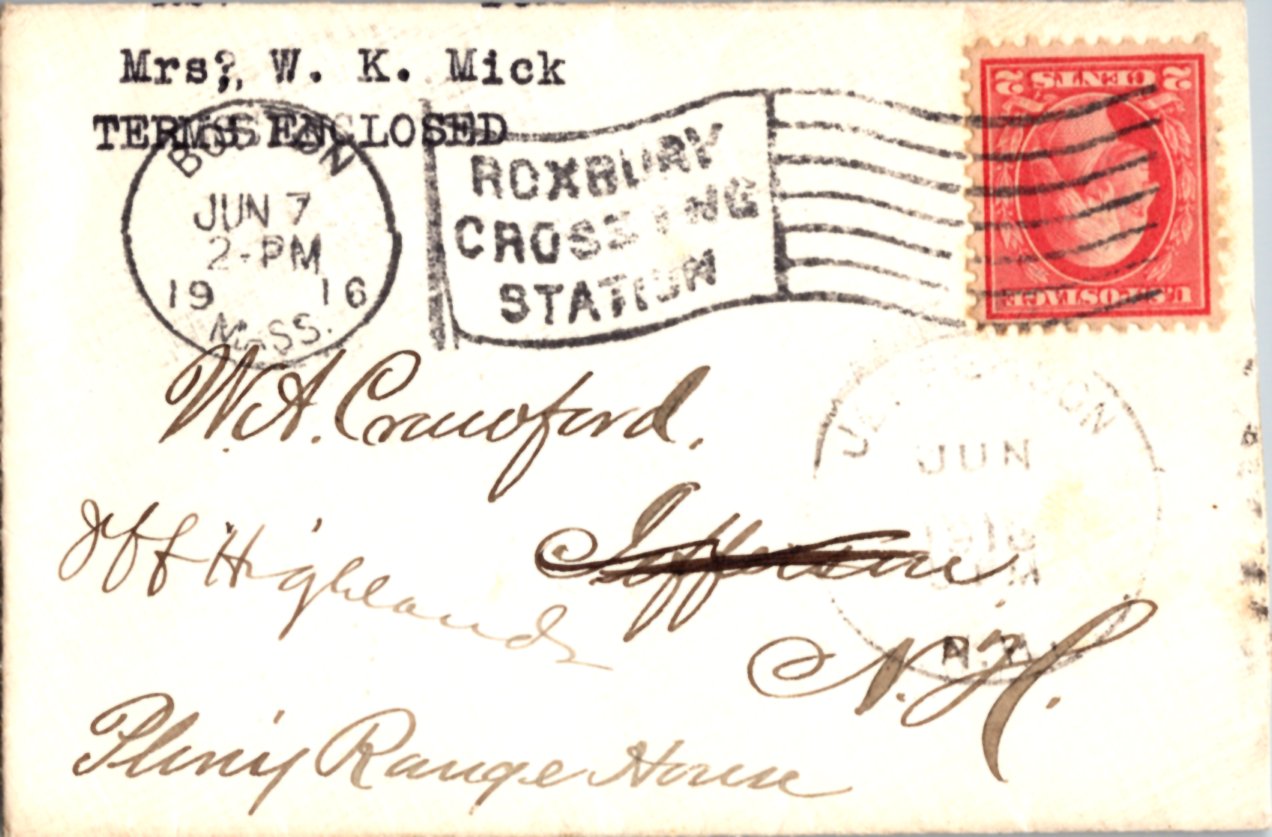 Mrs?, W. K. Mick
TERMS ENCLOSED
BOSTON
JUN 7
2-PM
19 16
MASS.
ROXBURY
CROSSING
STATION
2 CENTS 2
U.S. POSTAGE
W.A. Crawford,
Jefferson
Jeff Highlands
N.H.
Pliny Range House
JEFFERSON
JUN
1916
N.H.